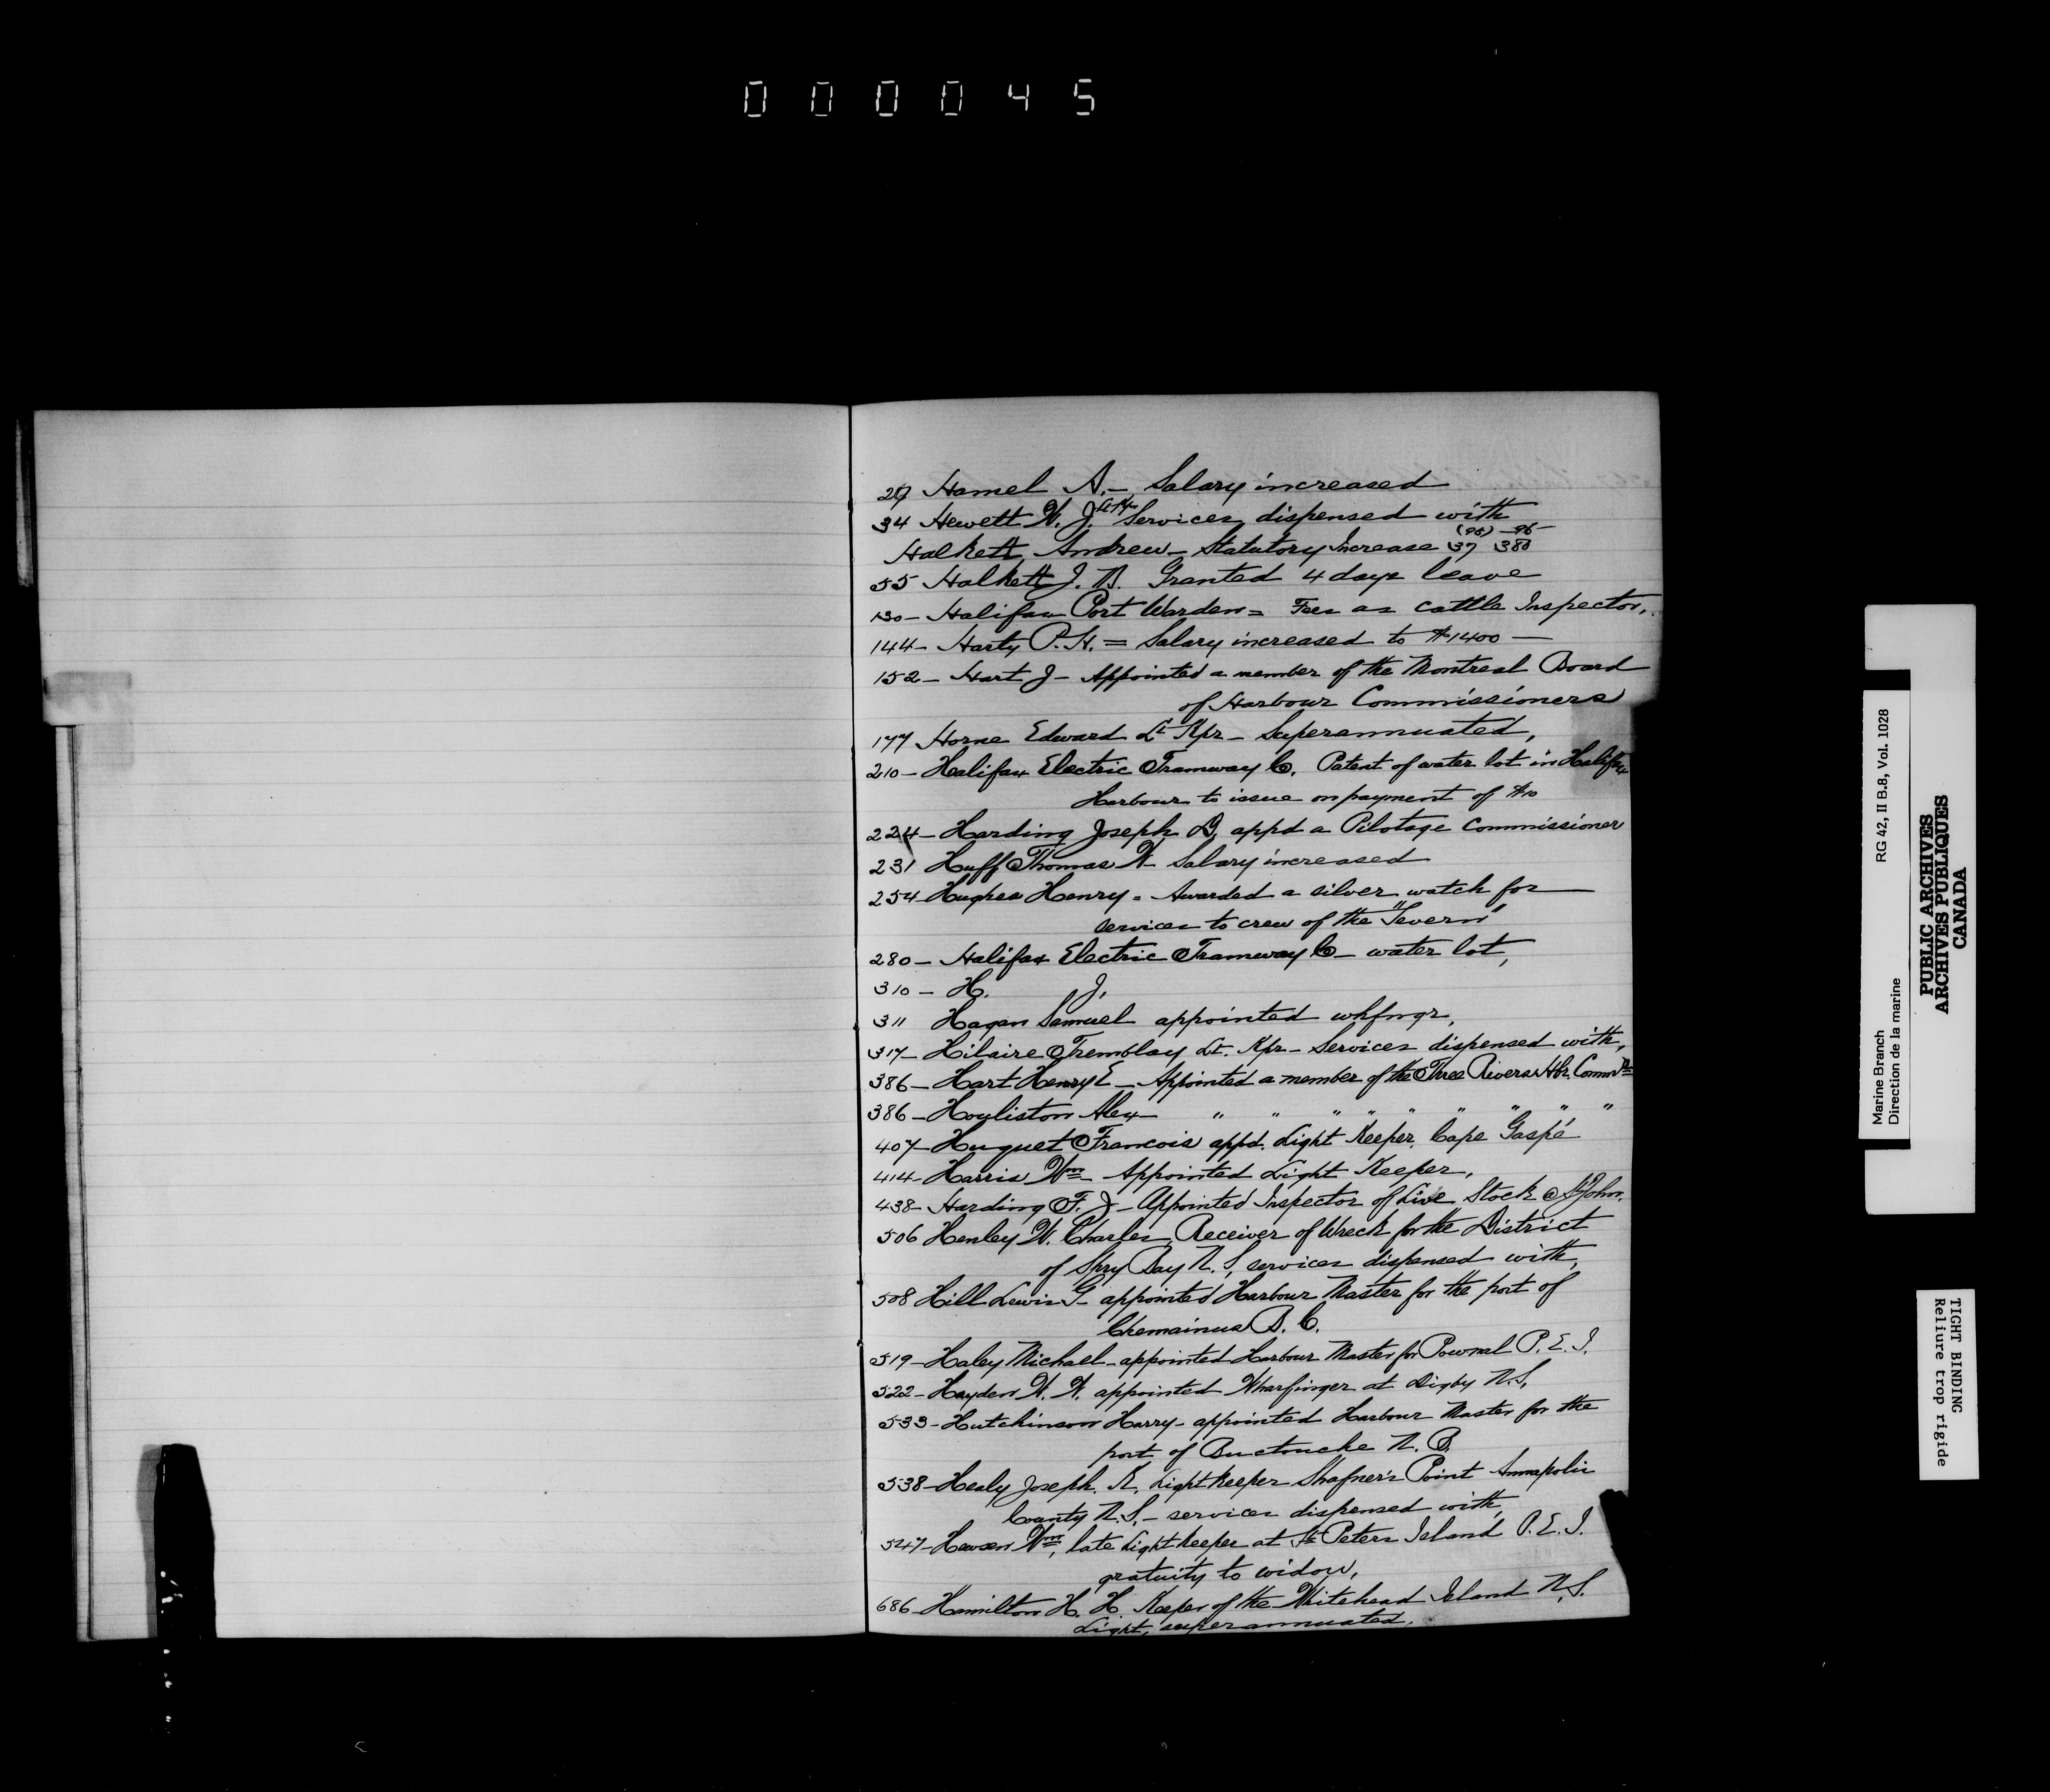 000045
29 Hamel A. - Salary increased
34 Hewett W. J. Lt Kpr Services dispensed with
Halkett, Andrew - Statutory Increase (95) 37 96 380
55 Halkett J. B. Granted 4 days leave
130 - Halifax Port Warden = Fees as cattle Inspector,
144 - Harty P. H. = Salary increased to $1400 -
152 - Hart J - Appointed a member of the Montreal Board
of Harbour Commissioners
177 Horne Edward Lt Kpr - Superannuated,
210 - Halifax Electric Tramway Co. Patent of water lot in Halifax
Harbour to issue on payment of $10
224 - Harding Joseph D, appd a Pilotage Commissioner
231 Huff Thomas W - Salary increased
254 - Hughes Henry - Awarded a silver watch for
services to crew of the "Severn"
280 - Halifax Electric Tramway Co - water lot,
310 - H. J.
311 Hagan Samuel appointed whfngr,
317 - Hilaire Tremblay Lt. Kpr - Services dispensed with,
386 - Hart Henry E - Appointed a member of the Three Rivers Hbr. Commrs
386 - Houliston Alex - " " " " " " " " "
407 - Huquet Francois appd. Light Keeper. Cape Gaspé
414 - Harris Wm - Appointed Light Keeper,
438 - Harding F. J - Appointed Inspector of Live Stock @ St John,
506 Henley W. Charles, Receiver of Wreck for the District
of Spry Bay N. S, services dispensed with,
508 Hill Lewis G - appointed Harbour Master for the port of
Chemainus B. C.
519 - Haley Michael - appointed Harbour Master for Pownal P. E. I.
522 - Hayden W. W. appointed Wharfinger at Digby N. S,
533 - Hutchinson Harry - appointed Harbour Master for the
port of Buctouche N. B.
538 - Healy Joseph. R. Light keeper Shafner's Point Annapolis
County N. S. - services dispensed with,
547 - Hewson Wm, late Light keeper at St Peters Island P. E. I.
gratuity to widow,
686 - Hamilton H. H. Keeper of the Whitehead Island N. S.
Light, superannuated.
Marine Branch RG 42, II B.8, Vol. 1028
Direction de la marine
PUBLIC ARCHIVES
ARCHIVES PUBLIQUES
CANADA
TIGHT BINDING
Reliure trop rigide